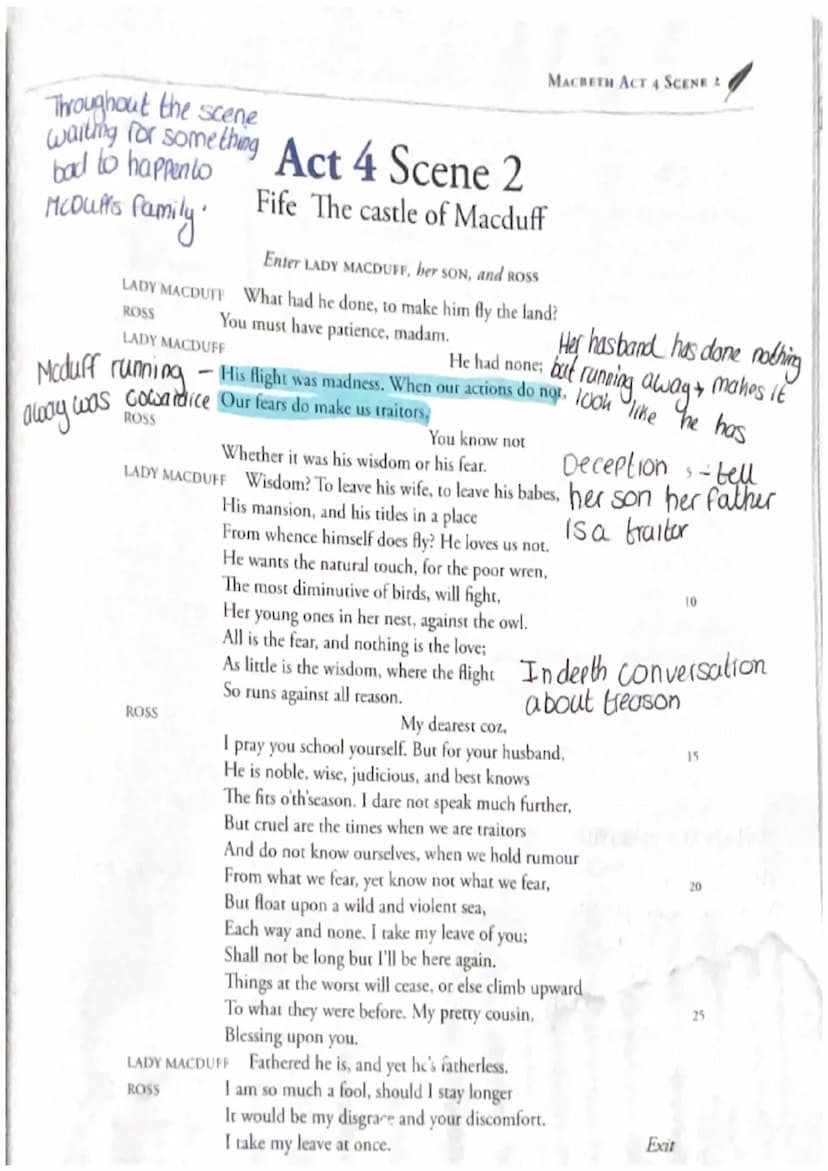 MACBETH ACT 4 SCENE 2
Throughout the scene
waiting for something
bad to happen to
McDuffs family.
Act 4 Scene 2
Fife The castle of Macduff
Enter LADY MACDUFF, her SON, and ROSS
LADY MACDUFF What had he done, to make him fly the land?
ROSS You must have patience, madam.
LADY MACDUFF He had none;
Her hasband has done nothing
but running away → makes it
look like he has
Mcduff running –
away was cowardice
His flight was madness. When our actions do not,
Our fears do make us traitors.
ROSS You know not
Whether it was his wisdom or his fear.
Deception , - tell
her son her father
is a traitor
LADY MACDUFF Wisdom? To leave his wife, to leave his babes,
His mansion, and his titles in a place
From whence himself does fly? He loves us not.
He wants the natural touch, for the poor wren,
The most diminutive of birds, will fight,
10
Her young ones in her nest, against the owl.
All is the fear, and nothing is the love;
As little is the wisdom, where the flight
So runs against all reason.
In depth conversation
about treason
ROSS My dearest coz,
I pray you school yourself. But for your husband,
15
He is noble, wise, judicious, and best knows
The fits o'th'season. I dare not speak much further,
But cruel are the times when we are traitors
And do not know ourselves, when we hold rumour
From what we fear, yet know not what we fear,
20
But float upon a wild and violent sea,
Each way and none. I take my leave of you;
Shall not be long but I'll be here again.
Things at the worst will cease, or else climb upward
To what they were before. My pretty cousin,
25
Blessing upon you.
LADY MACDUFF Fathered he is, and yet he's fatherless.
ROSS I am so much a fool, should I stay longer
It would be my disgrace and your discomfort.
I take my leave at once. Exit